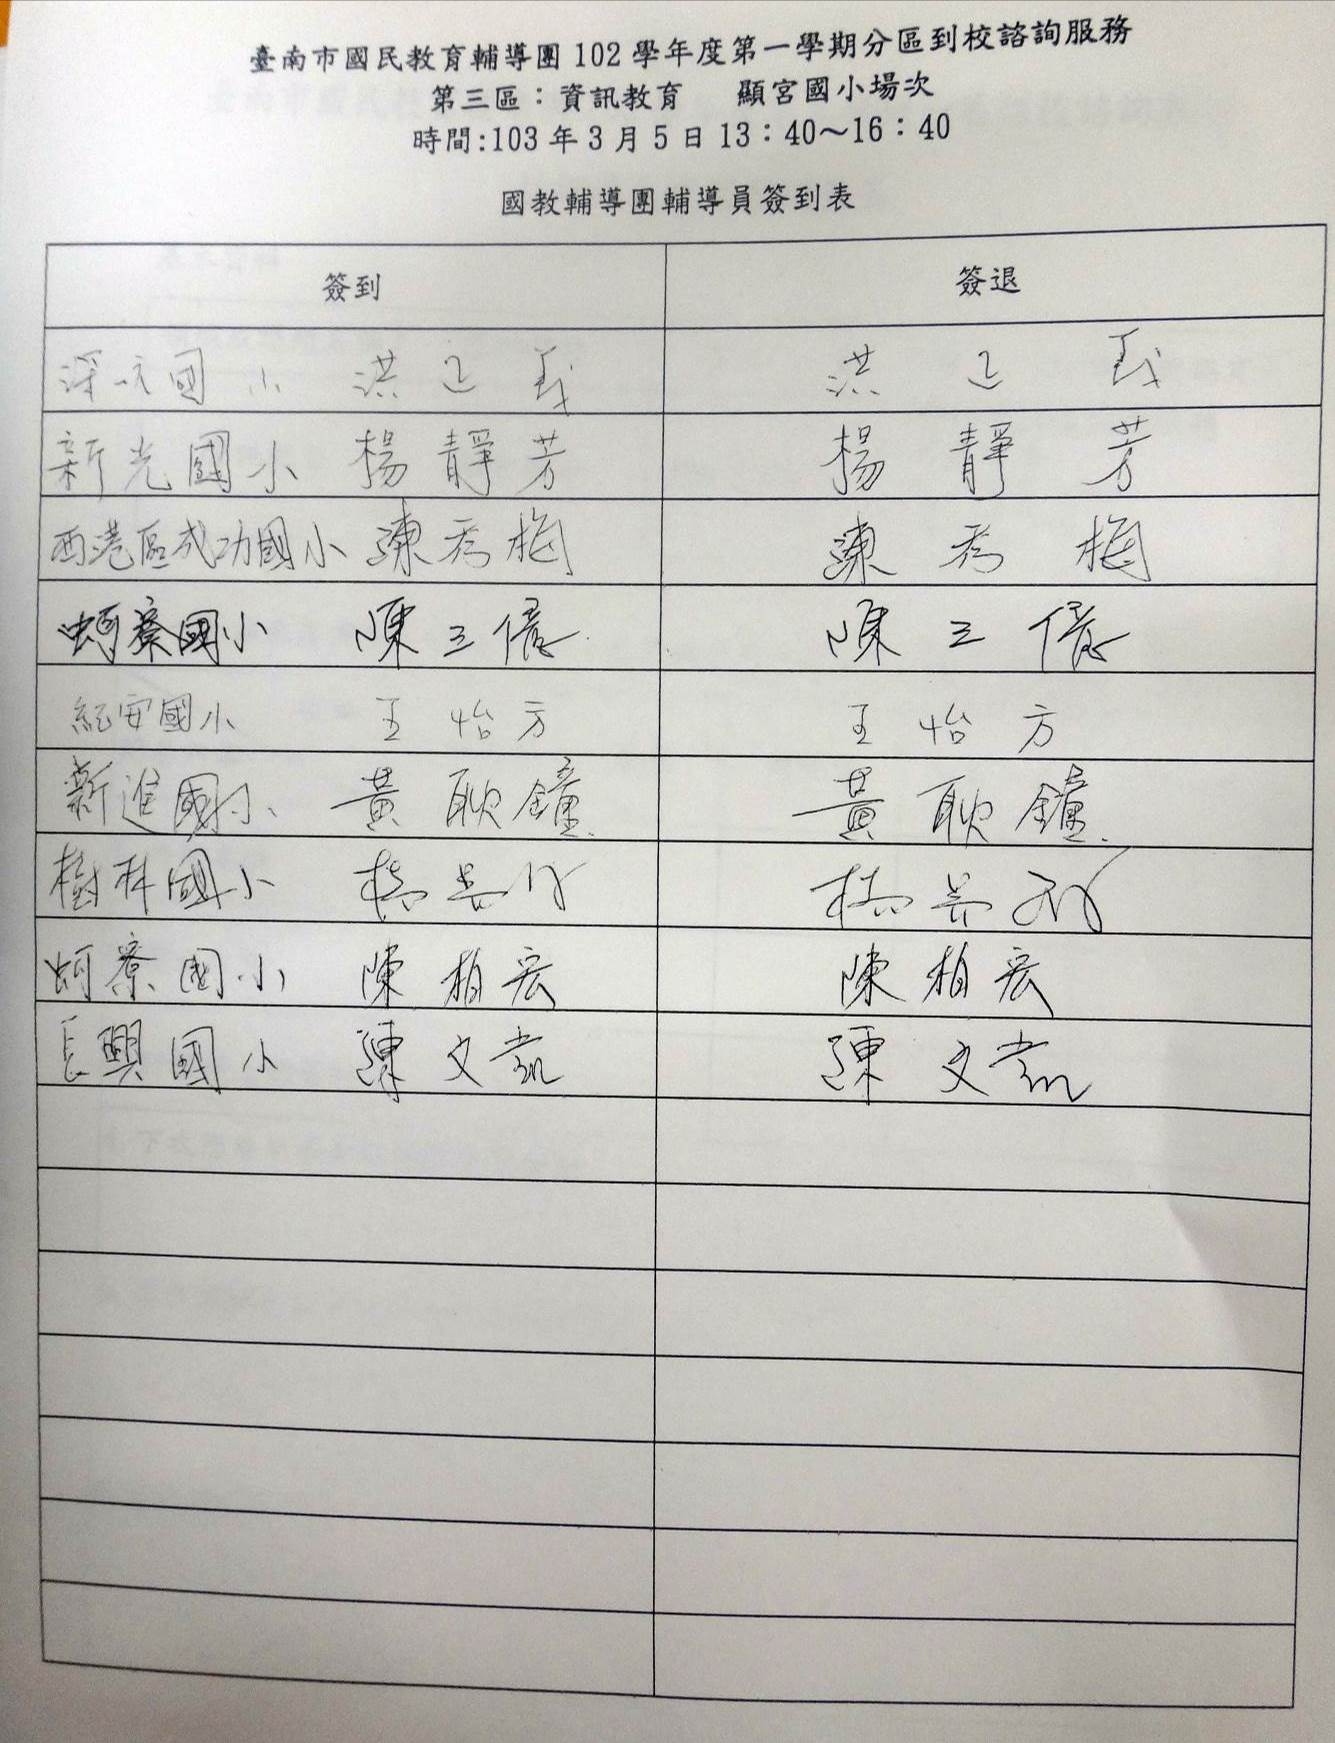 臺南市國民教育輔導團 102 學年度第一學期分區到校諮詢服務
第三區：資訊教育 顯宮國小場次
時間:103 年 3 月 5 日 13：40～16：40
國教輔導團輔導員簽到表
簽到 簽退
國小 洪 義 洪 義
新光國小 楊靜芳 楊靜芳
西港區成功國小 陳秀梅 陳秀梅
蚵寮國小 陳三億 陳三億
紀安國小 王怡方 王怡方
新進國小 黃耿鐘 黃耿鐘
樹林國小
蚵寮國小 陳柏宏 陳柏宏
長興國小 陳文 陳文